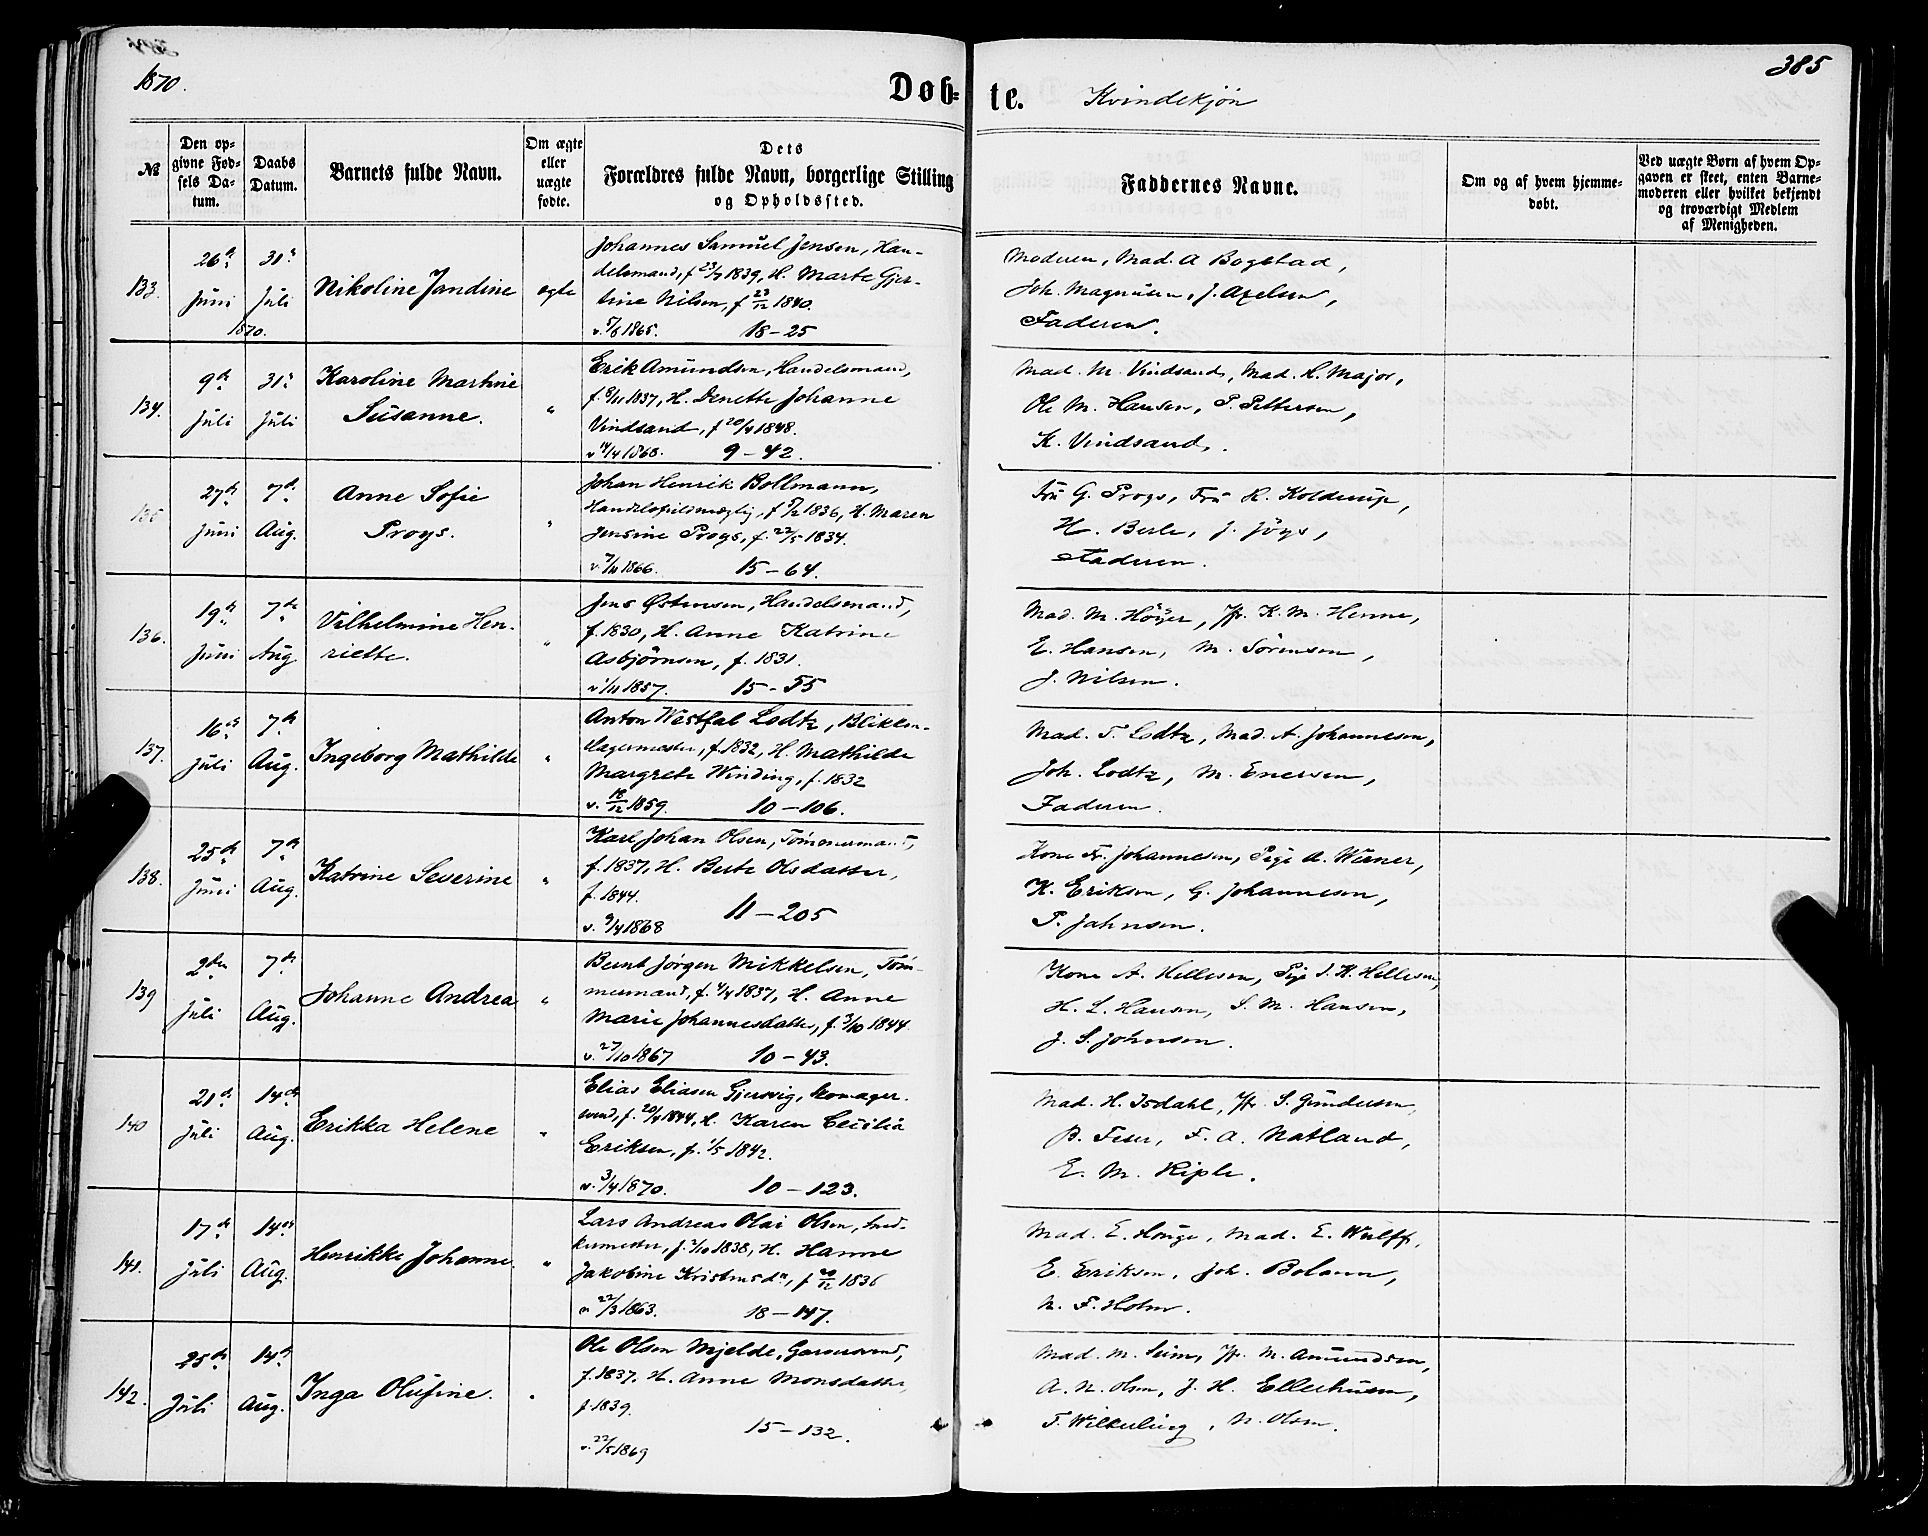 1870.
Døb-
te.
Kvindekjøn
385
№
Den op-
givne Fød-
sels Da-
tum.
Daabs
Datum.
Barnets fulde Navn.
Om ægte
eller
uægte
fødte.
Dets
Forældres fulde Navn, borgerlige Stilling
og Opholdssted.
Faddernes Navne.
Om og af hvem hjemme-
døbt.
Ved uægte Børn af hvem Op-
gaven er skeet, enten Barne-
moderen eller hvilket bekjendt
og troværdigt Medlem
af Menigheden.
133.
26de
Juni
1870.
31te
Juli
Nikoline Jandine
ægte
Johannes Samuel Jensen, Han-
delsmand, f 1839, H. Marte Gjer-
tine Nilsen, f 23/12 1840.
v. 1865. 18-25
Moderen, Mad. A Bogstad,
Joh. Magnusen, J. Axelsen,
Faderen.
134.
9de
Juli
31te
Juli
Karoline Martine
Susanne.
"
Erik Amundsen, Handelsmand,
f. 1837, H. Denette Johanne
Vindsand, f 20/4 1848.
v 1868. 9-42.
Mad. M. Vindsand, Mad. K. Major,
Ole M. Hansen, P. Pettersen,
K. Vindsand.
135
27de
Juni
7de
Aug.
Anne Sofie
Proys.
"
Johan Henrik Bollmann,
1836, H. Maren
Jensine Proys, f. 22/5 1834.
v 1866. 15-64.
Fru G. Proys, Fru K. Kolderup,
H. Berle, J.
Faderen.
136.
19de
Juni
7de
Aug
Vilhelmine Hen-
riette.
"
Jens Østensen, Handelsmand,
f. 1830, H. Anne Katrine
Asbjørnsen, f. 1831.
v 1857. 15-55
Mad. M. Höyer, Jfr. K. M. Henne,
E. Hansen, M. Sörensen,
J. Nilsen.
137.
16de
Juli
7de
Aug.
Ingeborg Mathilde
"
Anton Westfal Lodtz, Blikken-
slagermester, f. 1832, H. Mathilde
Margrete Winding, f. 1832
v. 18/12 1859. 10-106.
Mad. T. Lodtz, Mad. A. Johannesen,
Joh. Lodtz, M. Enersen,
Faderen.
138.
25de
Juni
7de
Aug.
Katrine Severine
"
Karl Johan Olsen, Tømmermand,
f. 1837, H. Berte Olsdatter,
f. 1844.
v. 9/4 1868 11-205
Kone Johannesen, Pige A. Werner,
K. Eriksen, G. Johannesen,
P. Jahnsen.
139
2den
Juli
7de
Aug.
Johanne Andrea
"
Bernt Jørgen Mikkelsen, Tøm-
mermand, f. 4/4 1837, H. Anne
Marie Johannesdatter, f. 3/10 1844
v. 27/10 1867 10-43.
Kone A. Hellesen, Pige J. K. Hellesen,
H. L. Hansen, S. M. Hansen,
J. S. Johnsen.
140
21de
Juli
14de
Aug.
Erikka Helene
"
Elias Eliasen Gjervig, skomager-
svend, f. 20/4 1844, H. Karen Cecilia
Eriksen, f. 1/5 1842.
v. 3/4 1870. 10-123.
Mad. H. Isdahl, Jfr. S. Gundersen,
F. A. Natland,
E. M. Riple.
141.
17de
Juli
14de
Aug.
Henrikke Johanne.
"
Lars Andreas Olai Olsen, Sned-
kermester, f. 2/10 1838, H. Hanne
Jakobine Kristensdr, f 20/12 1836
v 22/3 1863. 18-147.
Mad. E. Houge, Mad. E. Wulff,
E. Eriksen, Joh. Bolann,
N. F. Holm.
142.
25de
Juli
14de
Aug.
Inga Olufine.
"
Ole Olsen Mjelde, Garversvend,
f. 1837. H. Anne Monsdatter,
f 1839.
15-132.
v. 22/5 1869
Mad. M. Seim, Jfr. M. Amundsen,
A. N. Olsen, J. H. Ellerhusen,
T. , N. Olsen.